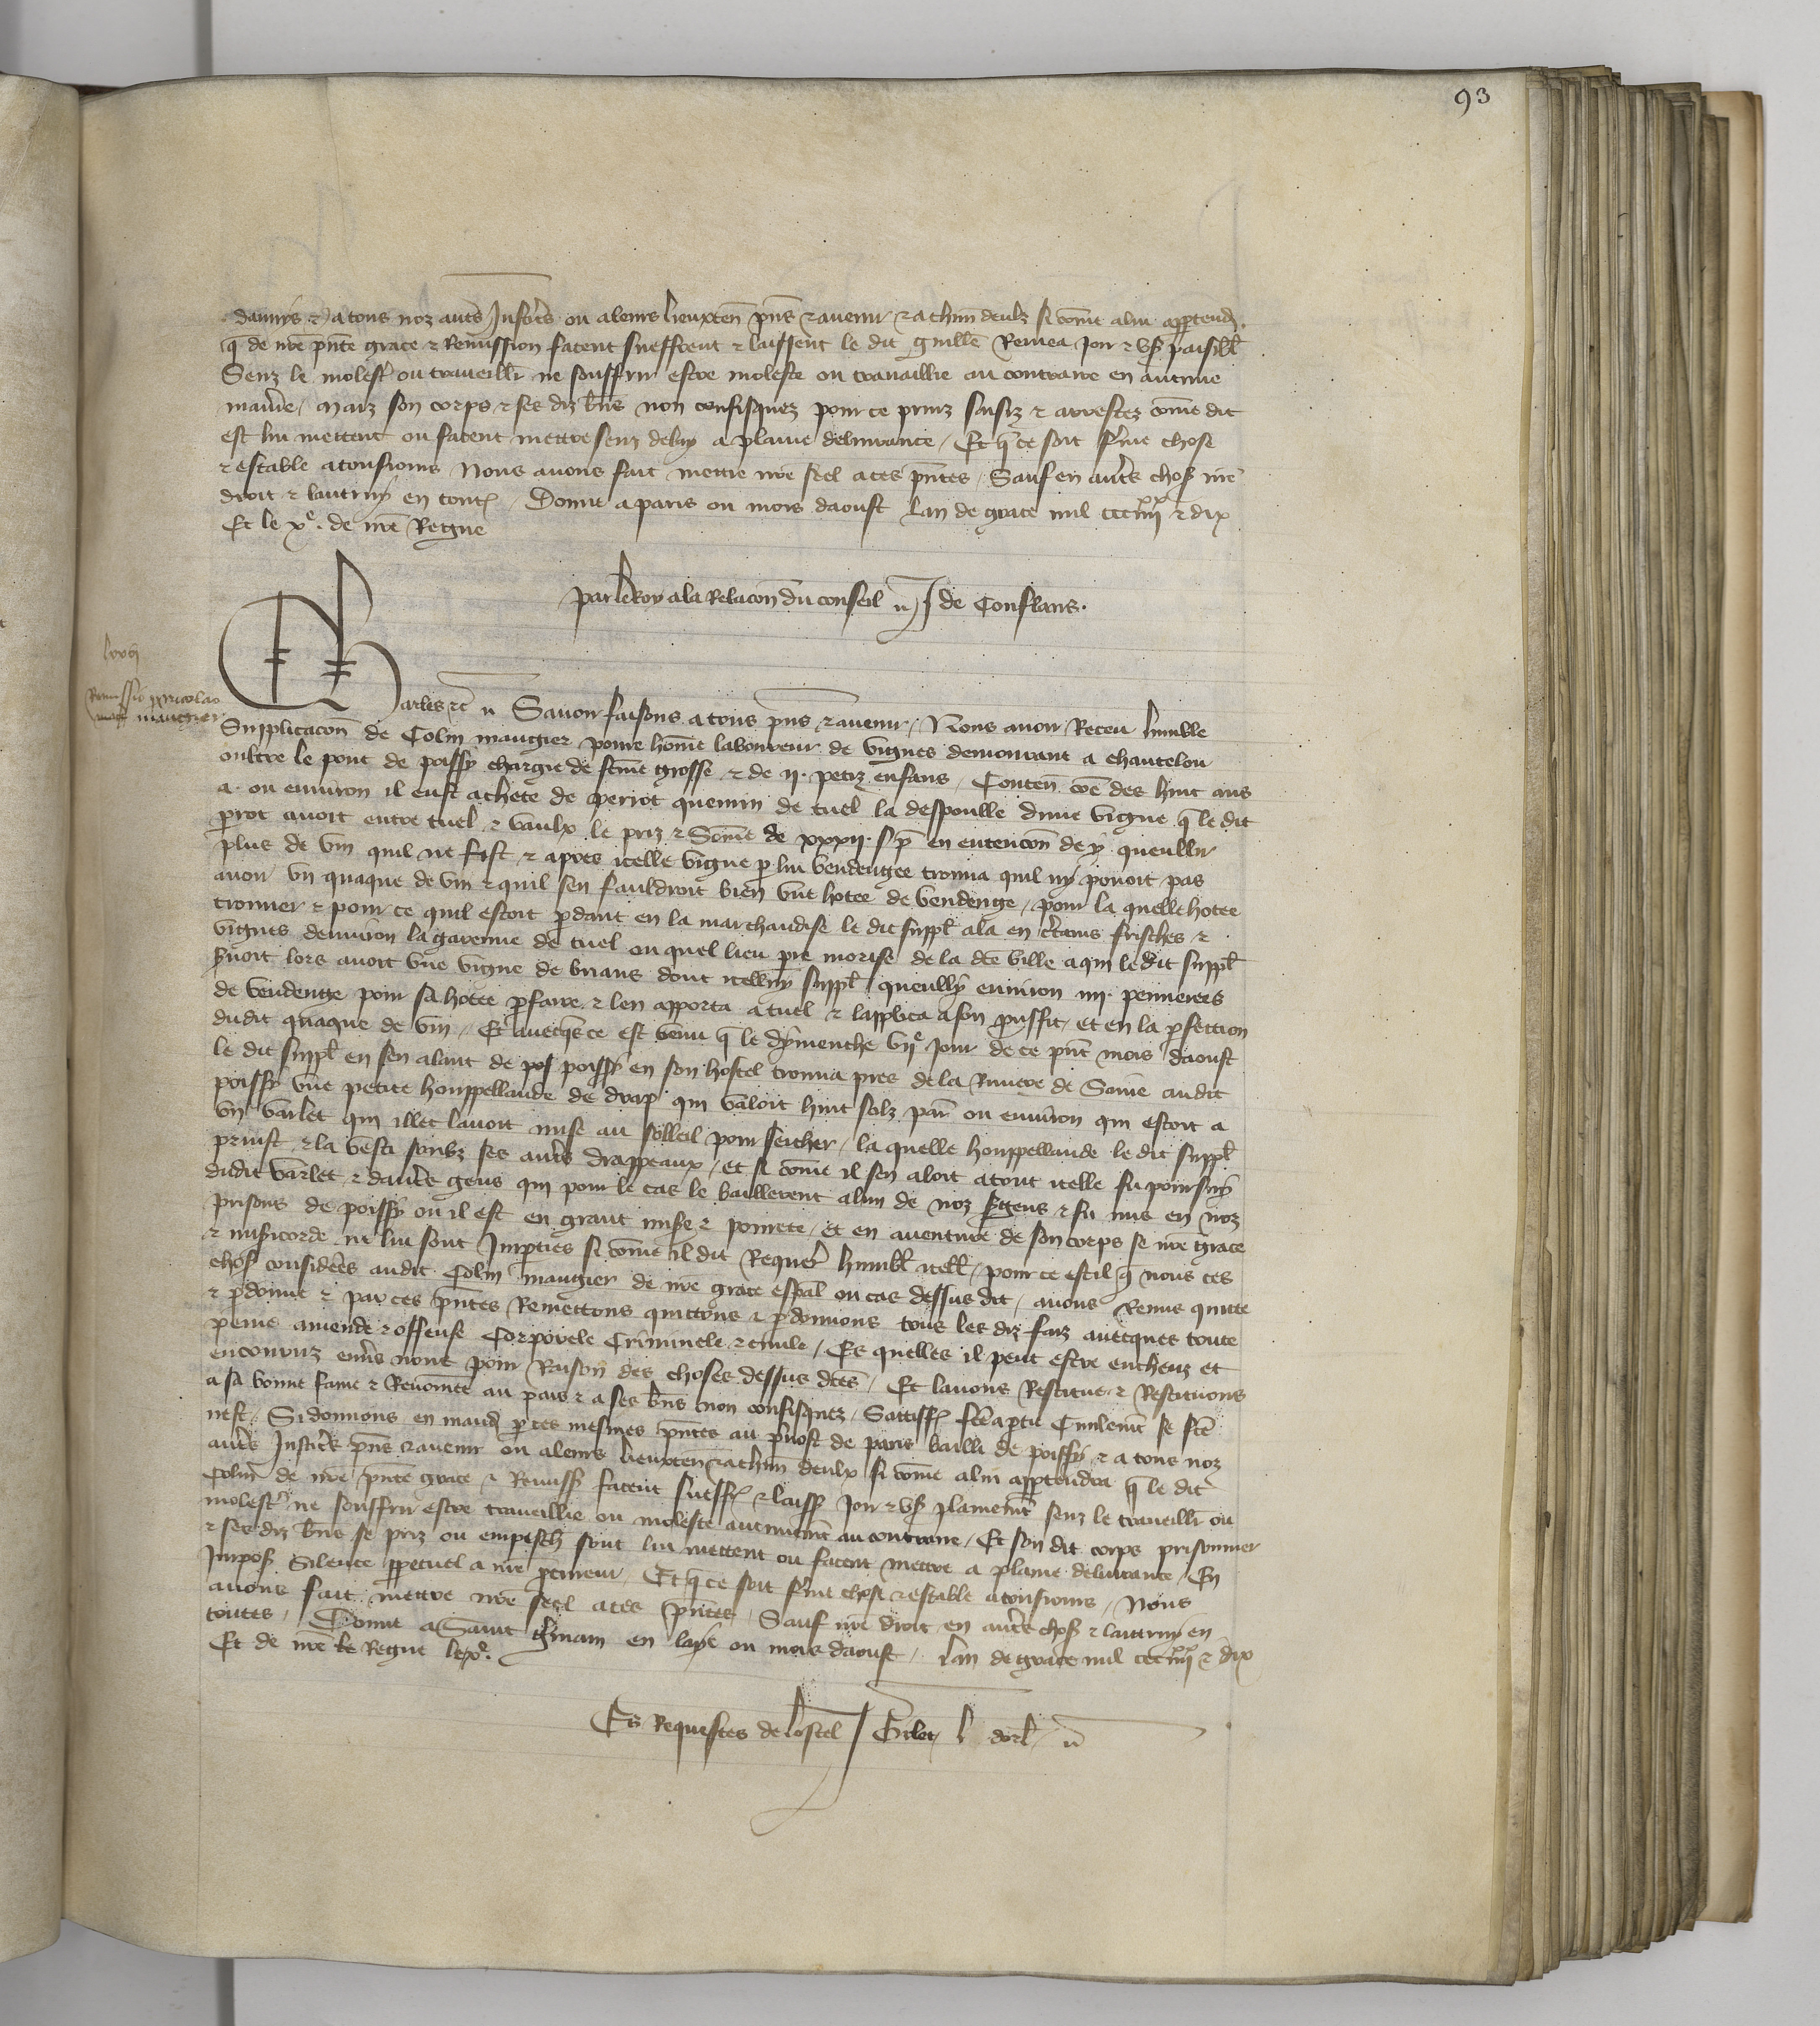 93
damiens & a tous noz autres Justiciers ou a leurs lieuxten pns & avenir & a chun deulz si come a lui appartendr
q de nre pnte grace & Remission facent sueffrent & laissent le dit guille Remea joir & user paisibl
Senz le molest ou traveillr ne souffrir estre moleste ou travaillie au contraire en aucune
maniere / Maiz son corps & ses diz biens non confisquez pour ce prinz saisiz & arrestez come dit
est lui mettent ou facent mettre senz delay a plaine delivrance / Et q ce soit ferme chose
& estable a tousiours Nous avons fait mettre nre seel a ces pntes / Sauf en autres choses nre
droit & lautruy en toutes / Donne a paris ou mois daoust lan de grace mil ccc iiiixx & dix
Et le xe. de nre Regne
par le Roy a la Relacon du conseil n J de Conflans.
lxxvii
Remissio p nicolao maugier
Charles etc n Savoir faisons a tous pns & avenir / Nous avoir Receu humble
Supplicacon de Colin maugier povre home laboureur de vignes demourant a chantelou
oultre le pont de poissy chargie de feme grosse & de ii. petiz enfans / Conten come des huit ans
a. ou environ il eust achete de perrot quemin de tuel la despoulle dune vigne q le dit
perrot avoit entre tuel & vaulx le priz & Some de xxxii. s p en entencon de y queullir
plus de vin quil ne fist & apres icelle vigne p lui vendengee trouva quil ny povoit pas
avoir un quaque de vin & quil sen fauldroit bien une hotee de vendenge / pour la quelle hotee
trouver & pour ce quil estoit perdant en la marchandise le dit suppl ala en certains frisches &
vignes denviron la garenne de tuel ou quel lieu pre morise de la dce ville a qui le dit suppl
servoit lors avoit une vigne de brians dont icelluy suppl queully environ iiii. pennerees
de vendenge pour sa hotee pfaire & len apporta a tuel & lapplica a son prouffit / et en la pfection
dudit quaque de vin / Et avecques ce est venu q le dymenche viie jour de ce pnt mois daoust
le dit suppl en sen alant de pos poissy en son hostel trouva pres de la Riviere de Saine au dit
poissy une petite houppellande de drap qui valoit huit solz par ou environ qui estoit a
un varlet qui illec lavoit mise au solleil pour seicher / la quelle houppellande le dit suppl
prinst & la vesti soubz ses autres drappeaux / et si come il sen aloit a tout icelle fu poursuy
dudit varlet & dautres gens qui pour le cas le baillerent a lun de noz sergens & fu mis en noz
prisons de poissy ou il est en grant misere & povrete / et en aventure de son corps se nre grace
& misericorde ne lui sont Imparties si come il dit Requer humbl icell / pour ce est il q nous ces
choses considerees au dit Colin maugier de nre grace espal ou cas dessus dit / avons Remis quitte
& pdonne & par ces pntes Remettons quittons & pdonnons tous les diz faiz avecques toute
peine amende & offense Corporele Criminele & civile / Es quelles il peut estre encheuz et
encouruz envers nous pour Raison des choses dessus dces / Et lavons Restitue & Restituons
a sa bonne fame & Renomee au pais & a ses biens non confisquez / Sattisf fce a ptie Civilemt se fce
nest / Si donnons en mand p ces mesmes pntes au prevost de paris bailli de poissy & a tous noz
autres Justicers pns & avenir ou a leurs lieuxten & a chun deulx si come a lui appartendra q le dit
Colin de nre pnte grace & Remiss facent sueffr & laiss joir & user plainemt senz le traveillr ou
molest ne souffrir estre traveillie ou moleste aucunemt au contraire / Et son dit corps prisonnier
& ses diz biens se priz ou empesch sont lui mettent ou facent mettre a plaine delivrance / En
Imposant Silence ppetuel a nre procureur / Et q ce soit ferme chose & estable a tousiours / Nous
avons fait mettre nre seel a ces pntes / Sauf nre droit en autres choses & lautruy en
toutes / Donne a Saint Germain en laye ou mois daoust / Lan de grace mil ccc iiiixx & dix
Et de nre Regne le xe.
Es Requestes de lostel / Gilet / dorl n